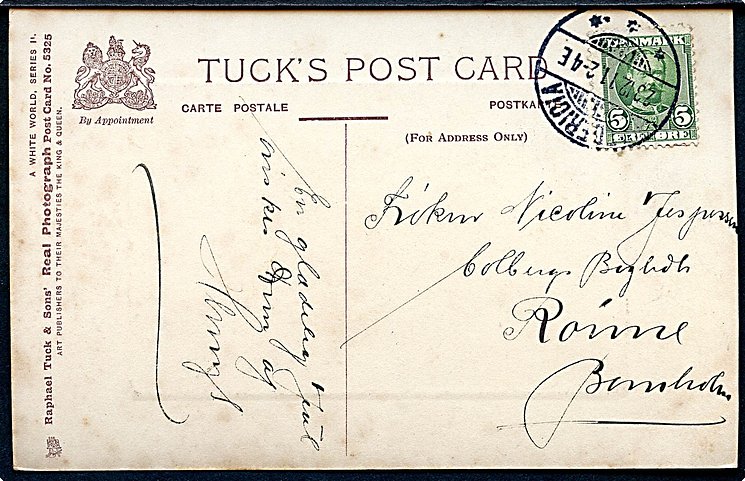 A WHITE WORLD, SERIES II.
Raphael Tuck & Sons' Real Photograph Post Card No. 5325
ART PUBLISHERS TO THEIR MAJESTIES THE KING & QUEEN.
By Appointment
TUCK'S POST CARD
CARTE POSTALE
POSTKAR
(FOR ADDRESS ONLY)
5 5
En glædelig Jul
ønskes Dem af
Frøken Nicoline Jespersen
Colbergs
Rönne
Bornholm